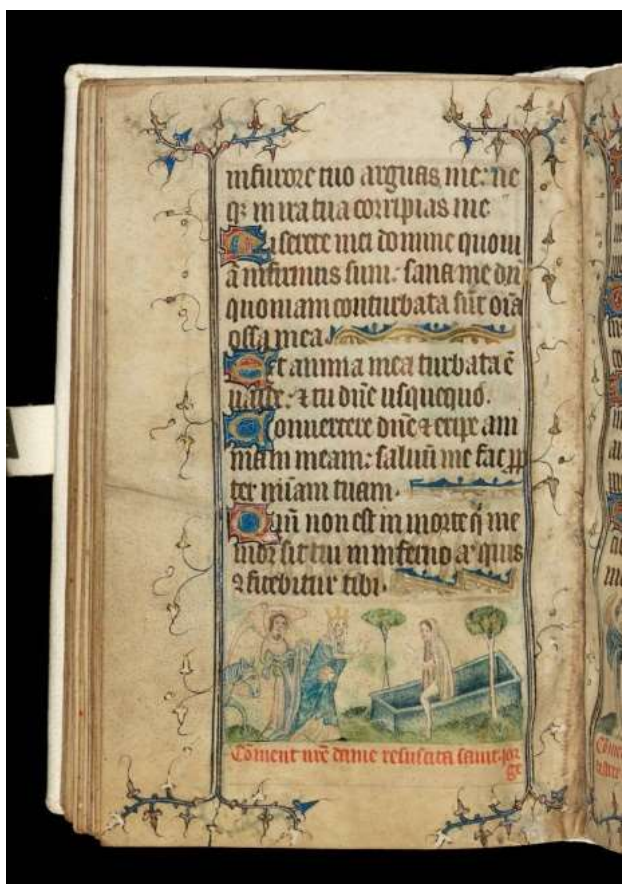 in furore tuo arguas me: ne
q; in ira tua corripias me
Miserere mei domine quoni
am infirmus sum: sana me dn̄e
quoniam conturbata sūt oīa
ossa mea.
Et anima mea turbata ē
ualde: ⁊ tu dn̄e usquequo.
Conuertere dn̄e ⁊ eripe am
mam meam: saluū me fac ꝓp
ter m̄iam tuam.
Qm̄ non est in morte q̄ me
mor sit tui in inferno aū quis
ꝯfitebitur tibi.
Cōment nr̄e dame resuscita saint ior
ge